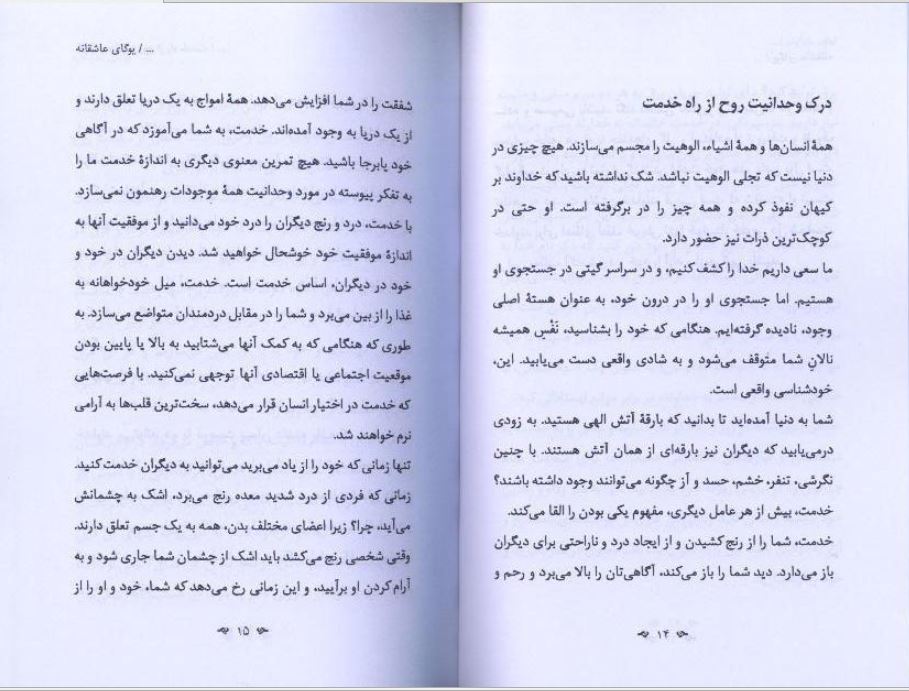 درک وحدانیت روح از راه خدمت
همهٔ انسان‌ها و همهٔ اشیاء، الوهیت را مجسم می‌سازند. هیچ چیزی در
دنیا نیست که تجلی الوهیت نباشد. شک نداشته باشید که خداوند بر
کیهان نفوذ کرده و همه چیز را در برگرفته است. او حتی در
کوچک‌ترین ذرات نیز حضور دارد.
ما سعی داریم خدا را کشف کنیم، و در سراسر گیتی در جستجوی او
هستیم. اما جستجوی او را در درون خود، به عنوان هستهٔ اصلی
وجود، نادیده گرفته‌ایم. هنگامی که خود را بشناسید، نَفْسِ همیشه
نالانِ شما متوقف می‌شود و به شادی واقعی دست می‌یابید. این،
خودشناسی واقعی است.
شما به دنیا آمده‌اید تا بدانید که بارقهٔ آتش الهی هستید. به زودی
درمی‌یابید که دیگران نیز بارقه‌ای از همان آتش هستند. با چنین
نگرشی، تنفر، خشم، حسد و آز چگونه می‌توانند وجود داشته باشند؟
خدمت، بیش از هر عامل دیگری، مفهوم یکی بودن را القا می‌کند.
خدمت، شما را از رنج کشیدن و از ایجاد درد و ناراحتی برای دیگران
باز می‌دارد. دید شما را باز می‌کند، آگاهی‌تان را بالا می‌برد و رحم و
۱۴
... / یوگای عاشقانه
شفقت را در شما افزایش می‌دهد. همهٔ امواج به یک دریا تعلق دارند و
از یک دریا به وجود آمده‌اند. خدمت، به شما می‌آموزد که در آگاهی
خود پابرجا باشید. هیچ تمرین معنوی دیگری به اندازهٔ خدمت ما را
به تفکر پیوسته در مورد وحدانیت همهٔ موجودات رهنمون نمی‌سازد.
با خدمت، درد و رنج دیگران را درد خود می‌دانید و از موفقیت آنها به
اندازهٔ موفقیت خود خوشحال خواهید شد. دیدن دیگران در خود و
خود در دیگران، اساس خدمت است. خدمت، میل خودخواهانه به
غذا را از بین می‌برد و شما را در مقابل دردمندان متواضع می‌سازد. به
طوری که هنگامی که به کمک آنها می‌شتابید به بالا یا پایین بودن
موقعیت اجتماعی یا اقتصادی آنها توجهی نمی‌کنید. با فرصت‌هایی
که خدمت در اختیار انسان قرار می‌دهد، سخت‌ترین قلب‌ها به آرامی
نرم خواهند شد.
تنها زمانی که خود را از یاد می‌برید می‌توانید به دیگران خدمت کنید.
زمانی که فردی از درد شدید معده رنج می‌برد، اشک به چشمانش
می‌آید، چرا؟ زیرا اعضای مختلف بدن، همه به یک جسم تعلق دارند.
وقتی شخصی رنج می‌کشد باید اشک از چشمان شما جاری شود و به
آرام کردن او برآیید، و این زمانی رخ می‌دهد که شما، خود و او را از
۱۵